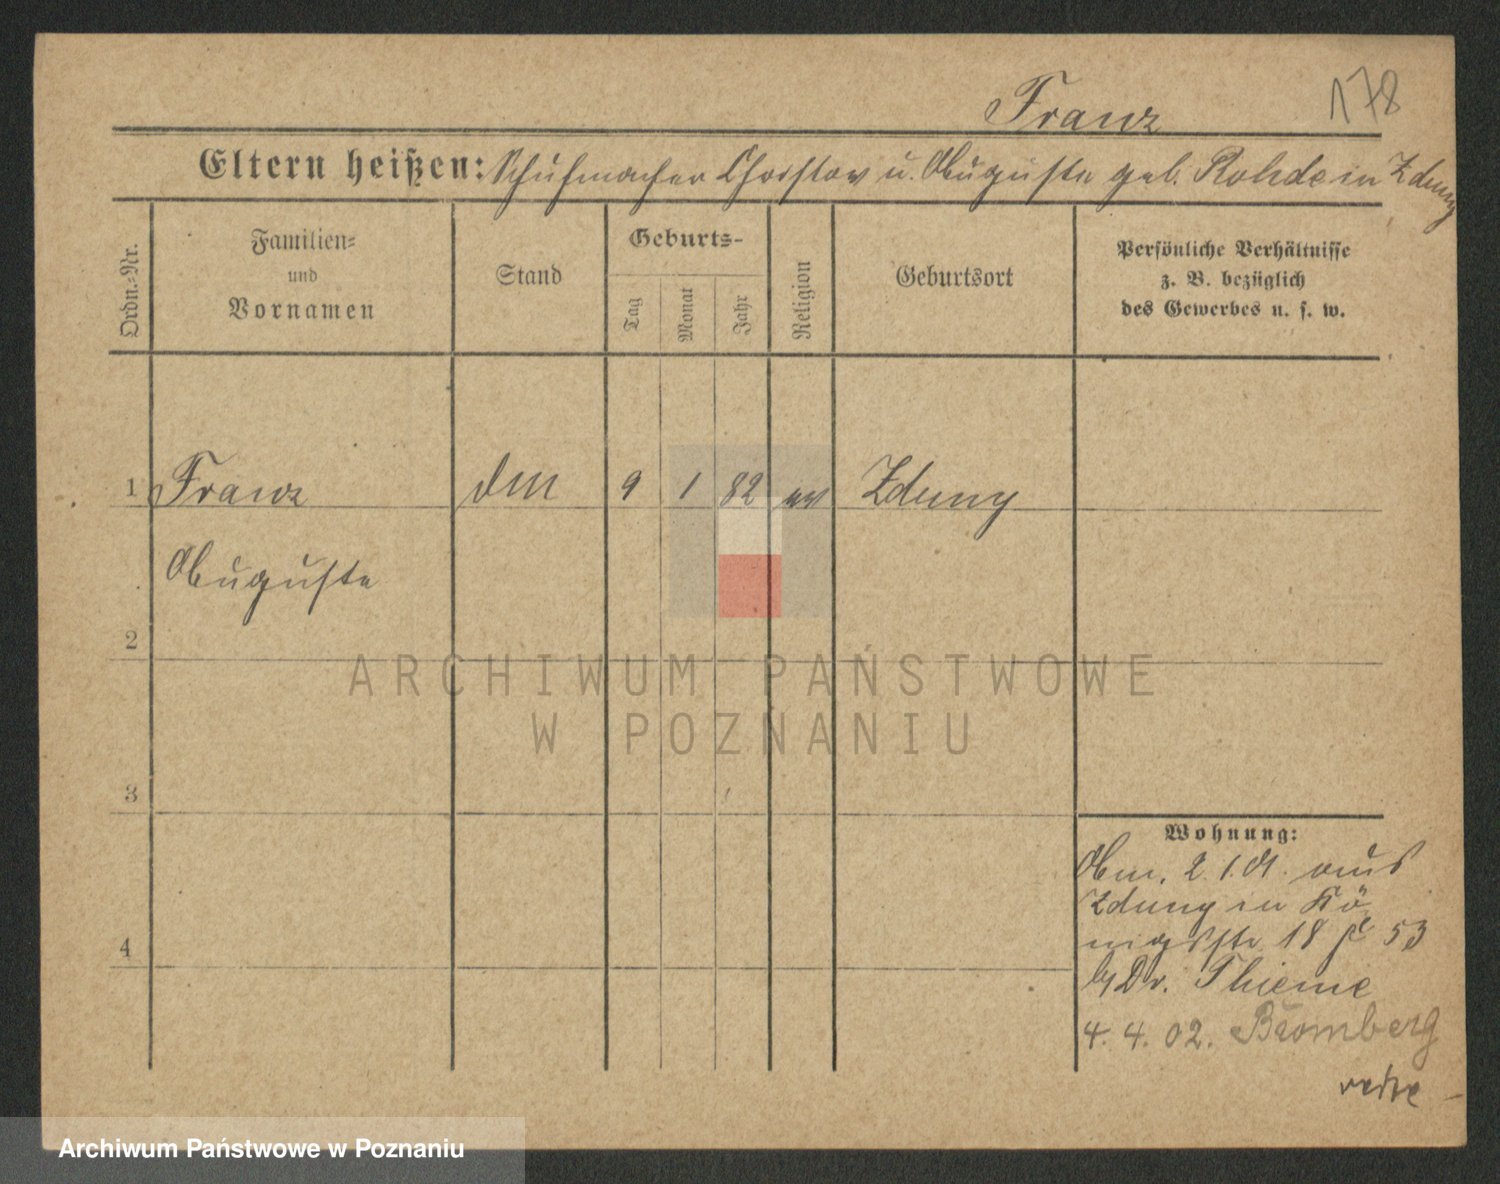 178
Franz
Eltern heißen: Schuhmacher Christov u. Auguste geb. Rohde in Zduny
Ordn.-Nr.
Familien-
und
Vornamen
Stand
Geburts-
Tag
Monat
Jahr
Religion
Geburtsort
Persönliche Verhältnisse
z. B. bezüglich
des Gewerbes u. s. w.
1 Franz 9 1 82 ev Zduny
Auguste
2
ARCHIWUM PAŃSTWOWE
W POZNANIU
3
Wohnung:
Anm. 2. 1. 01. aus
Zduny in Kö-
nigsstr. 18 53
b/ Dr. Thieme
4
4. 4. 02. Bromberg
Archiwum Państwowe w Poznaniu